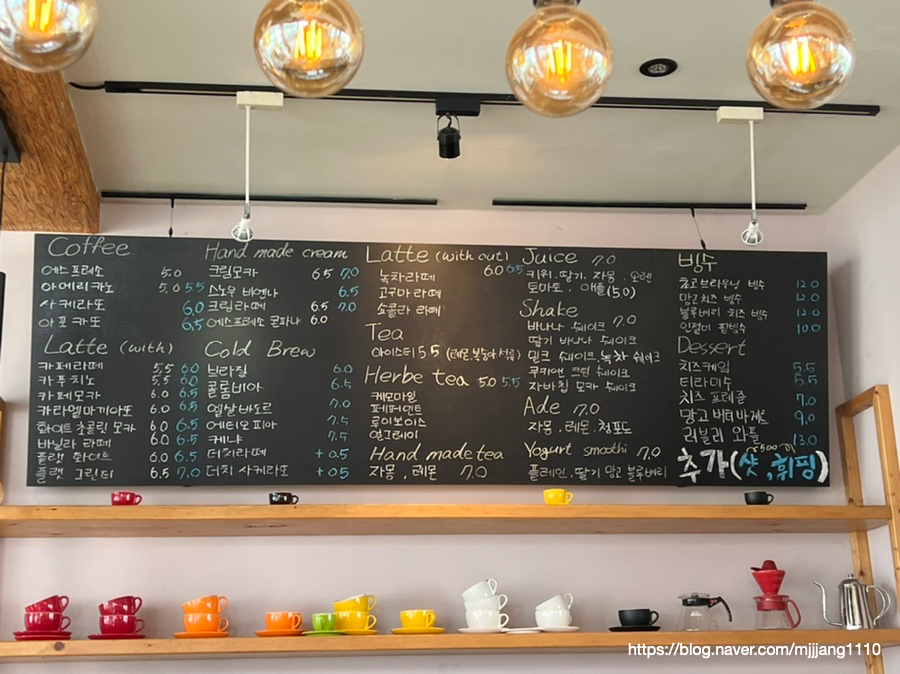 Coffee
에스프레소 5.0
아메리카노 5.0 5.5
사케라또 6.0
아포카또 6.5
Latte (with)
카페라떼 5.5 6.0
카푸치노 5.5 6.0
카페모카 6.0 6.5
카라멜마키아또 6.0 6.5
화이트 초콜릿 모카 6.0 6.5
바닐라 라떼 6.0 6.5
플랫 화이트 6.0 6.5
플랫 그린티 6.5 7.0
Hand made cream
크림모카 6.5 7.0
스노우 비엔나 6.5
크림라떼 6.5 7.0
에스프레소 콘파냐 6.0
Cold Brew
브라질 6.0
콜롬비아 6.5
엘살바도르 7.0
에티오피아 7.5
케냐 7.5
더치라떼 +0.5
더치 사케라또 +0.5
Latte (with out)
녹차라떼 6.0 6.5
고구마라떼
쇼콜라 라떼
Tea
아이스티 5.5 (레몬, 복숭아 석류)
Herbe tea 5.0 5.5
케모마일
페퍼먼트
루이보이스
얼그레이
Hand made tea
자몽, 레몬 7.0
Juice 7.0
키위, 딸기, 자몽, 오렌
토마토, 애플(5.0)
Shake
바나나 쉐이크 7.0
딸기 바나나 쉐이크
밀크 쉐이크, 녹차 쉐이크
쿠키앤 크림 쉐이크
자바칩 모카 쉐이크
Ade 7.0
자몽, 레몬, 청포도
Yogurt smoothi 7.0
플레인, 딸기 망고 블루베리
빙수
초코브라우닝 빙수 12.0
망고치즈 빙수 12.0
블루베리 치즈 빙수 12.0
인절미 팥빙수 10.0
Dessert
치즈케잌 5.5
티라미수 5.5
치즈 프레즐 7.0
망고 버터바게트 9.0
리브리 와플 13.0
추가(샷, 휘핑)
https://blog.naver.com/mjjjang1110